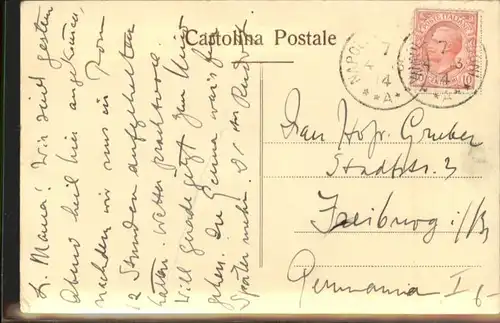 Cartolina Postale
L. Mama! Wir sind gestern
Abend heil hier angekommen,
nachdem wir uns in Rom
12 Stunden aufgehalten
hatten. Wetter prachtvoll.
Will gerade jetzt zum
gehen. In Genua war's
später mehr.
POSTE ITALIANE
10
NAPOLI
7
4
* * A *
7
4
* * A *
Frau Hofr. Gruber
Stadtstr. 3
Freiburg i/B
Germania I